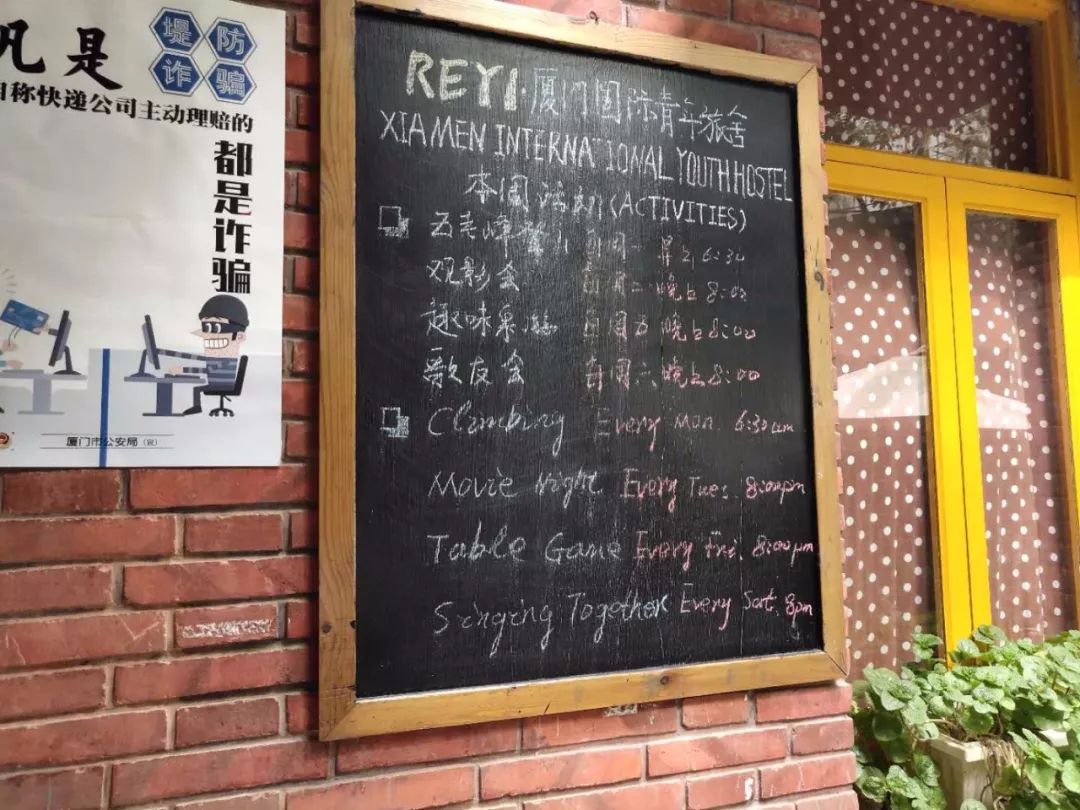 凡是
堤防
诈骗
自称快递公司主动理赔的
都是诈骗
厦门市公安局(宣)
REYI·厦门国际青年旅舍
XIAMEN INTERNATIONAL YOUTH HOSTEL
本周活动(ACTIVITIES)
五老峰 每周一 早上6:30
观影会 每周二晚上8:00
趣味桌游 每周五晚上8:00
歌友会 每周六晚上8:00
Climbing Every Mon. 6:30am
Movie Night Every Tues. 8:00pm
Table Game Every Fri. 8:00pm
Singing Together Every Sat. 8pm